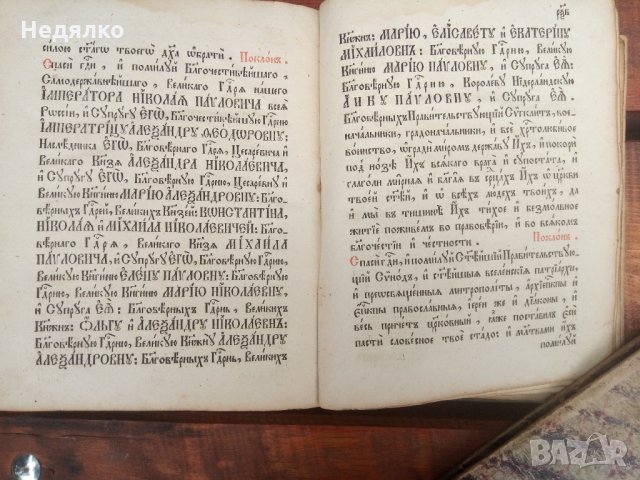 Недялко
силою ст҃аго твоегѡ дх҃а ѡбрати. Поклонъ.
Спаси гд҇и, и помилуй Бл҃гочестивѣйшаго,
Самодержавнѣйшаго, Великаго Гд҇ря нашего
ІМПЕРАТОРА НІКОЛАЯ ПАVЛОВИЧА всея
Рѡссіи, и Супругу ЕГѠ, Бл҃гочестивѣйшую Гд҇рню
ІМПЕРАТРІЦУ АЛЕѮАНДРУ ѲЕОДОРОВНУ:
Наслѣдника ЕГѠ, Бл҃говѣрнаго Гд҇ря, Цесаревича и
Великаго Князя АЛЕѮАНДРА НІКОЛАЕВИЧА,
и Супругу ЕГѠ, Бл҃говѣрную Гд҇рню, Цесаревну и
Великую Княгиню МАРІЮ АЛЕѮАНДРОВНУ: Бл҃го-
вѣрныхъ Гд҇рей, Великихъ Князей: КОНСТАНТІНА,
НІКОЛАЯ и МІХАИЛА НІКОЛАЕВИЧЕЙ: Бл҃го-
вѣрнаго Гд҇ря, Великаго Князя МІХАИЛА
ПАVЛОВИЧА, и Супругу ЕГѠ: Бл҃говѣрную Гд҇рню,
Великую Княгиню ЕЛЕНУ ПАVЛОВНУ: Бл҃говѣр-
ную Гд҇рню, Великую Княгиню МАРІЮ НІКОЛАЕВНУ,
и Супруга ЕЯ: Бл҃говѣрныхъ Гд҇рнь, Великихъ
Княжнъ: ѺЛЬГУ и АЛЕѮАНДРУ НІКОЛАЕВНЪ:
Бл҃говѣрную Гд҇рню, Великую Княжну АЛЕѮАНДРУ
АЛЕѮАНДРОВНУ: Бл҃говѣрныхъ Гд҇рнь, Великихъ
Княжнъ: МАРІЮ, ЕЛІСАВЕТУ и ЕКАТЕРІНУ
МІХАИЛОВНЪ: Бл҃говѣрную Гд҇рню, Великую
Княгиню МАРІЮ ПАVЛОВНУ, и Супруга ЕЯ:
Бл҃говѣрную Гд҇рню, Королеву Нідерландскую
АННУ ПАVЛОВНУ, и Супруга ЕЯ.
Бл҃говѣрныхъ Правительствующій Сѵнклитъ, вое-
начальники, градоначальники, и все хрт҇олюбивое
воинство, ѡгради миромъ державу Ихъ, и покори
под нозѣ Ихъ всякаго врага и сопостата, и
глаголи мирная и благая въ ср҃дцахъ Ихъ ѡ цр҃кви
твоей ст҃ѣй, и ѡ всѣхъ людехъ твоихъ, да
и мы въ тишинѣ Ихъ тихое и безмолвное
житіе поживемъ во правовѣріи, и во всякомъ
благочестіи и честности. Поклонъ.
Спаси гд҇и, и помилуй Ст҃ѣйшій Правительствую-
щій Сѵнодъ, и ст҃ѣйшыя вселенскія патріархи,
и преосвященныя митрополиты, архіепкⷭ҇пы и
епкⷭ҇пы православныя, іереи же и діаконы, и
весь причетъ церковный, яже поставилъ еси
пасти словесное твое стадо: и мл҃твами ихъ
помилуй
BAZAR